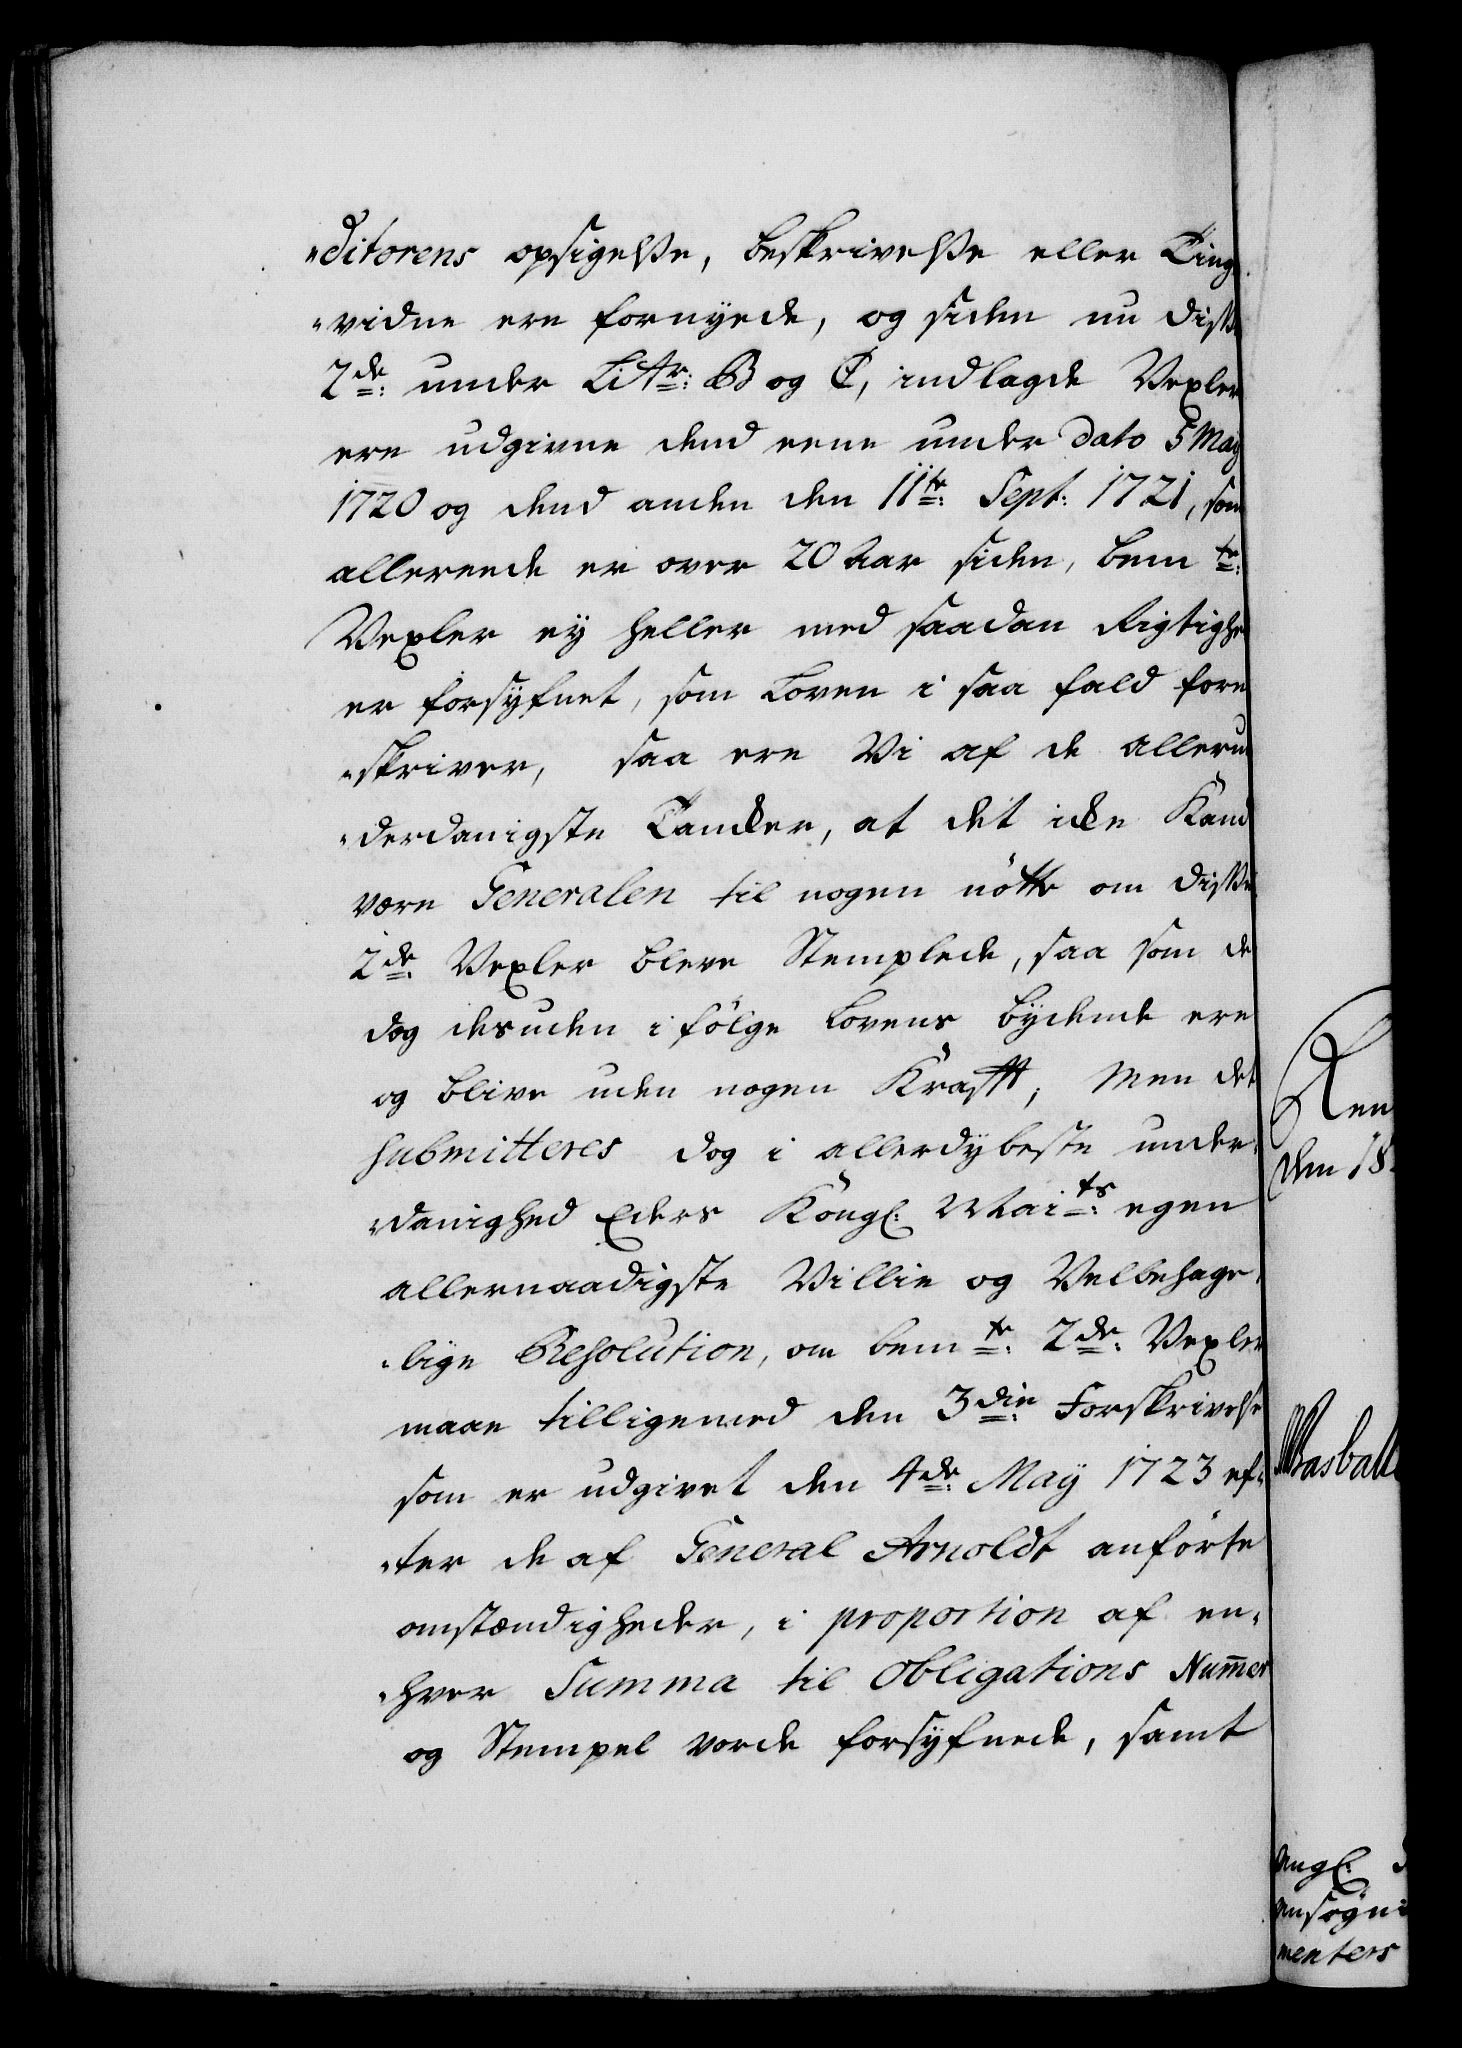 "ditorens opsigelse, beskrivelse eller Ting
"vidne ere fornyede, og siden nu disse
2de: under Litr: B og C, indlagde Vexler
ere udgivne dend eene under dato 5 Maÿ
1720 og dend anden den 11te: Sept: 1721, som
allereede er over 20 Aar siden, bemte:
Vexler eÿ heller med saadan Rigtighed
er forsÿfnet, som Loven i saa fald fore
"skriver, saa ere Vi af de allerun
"derdanigste Tancker, at det icke Kand
være Generalen til nogen nötte om disse
2de: Vexler bleve Stemplede, saa som de
dog desuden i fölge Lovens bÿdende ere
og blive uden nogen Krafft; Men det
submitteres dog i allerdÿbeste under-
"danighed Eders Kongl: Maits: egen
allernaadigste Villie og Velbehage-
"lige Resolution, om bemte: 2de: Vexler
maae tilligemed den 3die: Forskrivelse
som er udgivet den 4de: Maÿ 1723 ef-
"ter de af General Arnoldt anförte
omstændigheder, i proportion af en-
"hver Summa til Obligations Num̄er
og Stempel vorde forsÿfnede, samt
Ren
den 18
Basball
ngl:
nsögni
menters